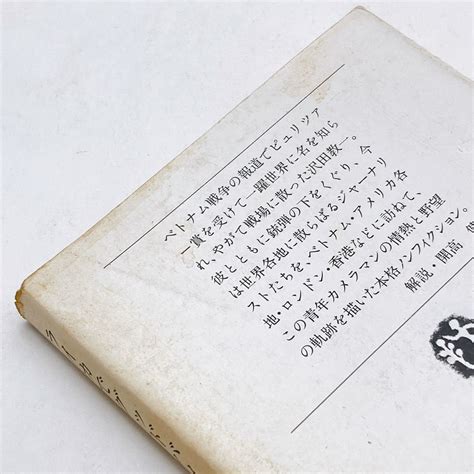 ベトナム戦争の報道でピュリツァ
ー賞を受けて一躍世界に名を知ら
れ、やがて戦場に散った沢田教一。
彼とともに銃弾の下をくぐり、今
は世界各地に散らばるジャーナリ
ストたちを、ベトナム・アメリカ各
地・ロンドン・香港などに訪ねて、
この青年カメラマンの情熱と野望
の軌跡を描いた本格ノンフィクション。
解説・開高 健